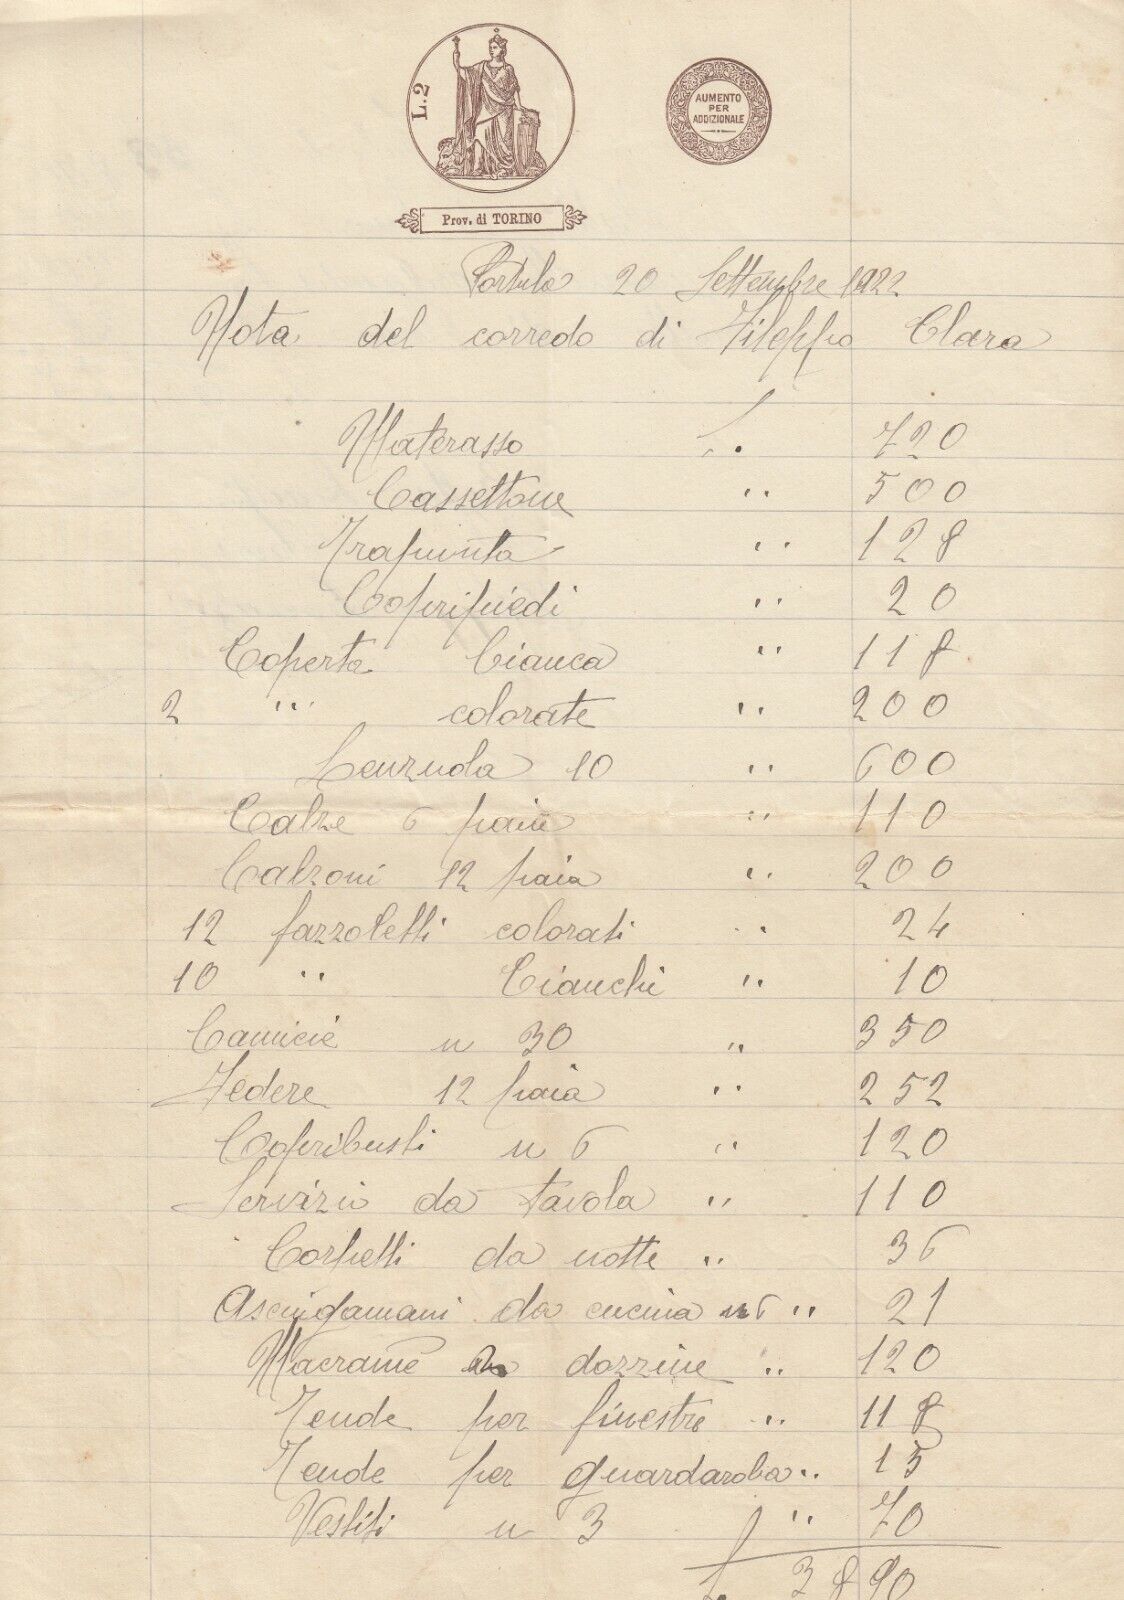 L. 2
AUMENTO
PER
ADDIZIONALE
Prov. di TORINO
Portula 20 Settembre 1922
Nota del corredo di Fileppo Clara
Materasso L. 720
Cassettone " 500
Trapunta " 128
Copripiedi " 20
Coperta bianca " 118
2 " colorate " 200
Lenzuola 10 " 600
Calze 6 paia " 110
Calzoni 12 paia " 200
12 fazzoletti colorati " 24
10 " bianchi " 10
Camicie n 30 " 350
Federe 12 paia " 252
Copribusti n 6 " 120
Servizio da tavola " 110
Corpetti da notte " 36
Asciugamani da cucina n 6 " 21
Macramé dozzine " 120
Tende per finestre " 118
Tende per guardaroba " 15
Vestiti n 3 " 70
L. 3890